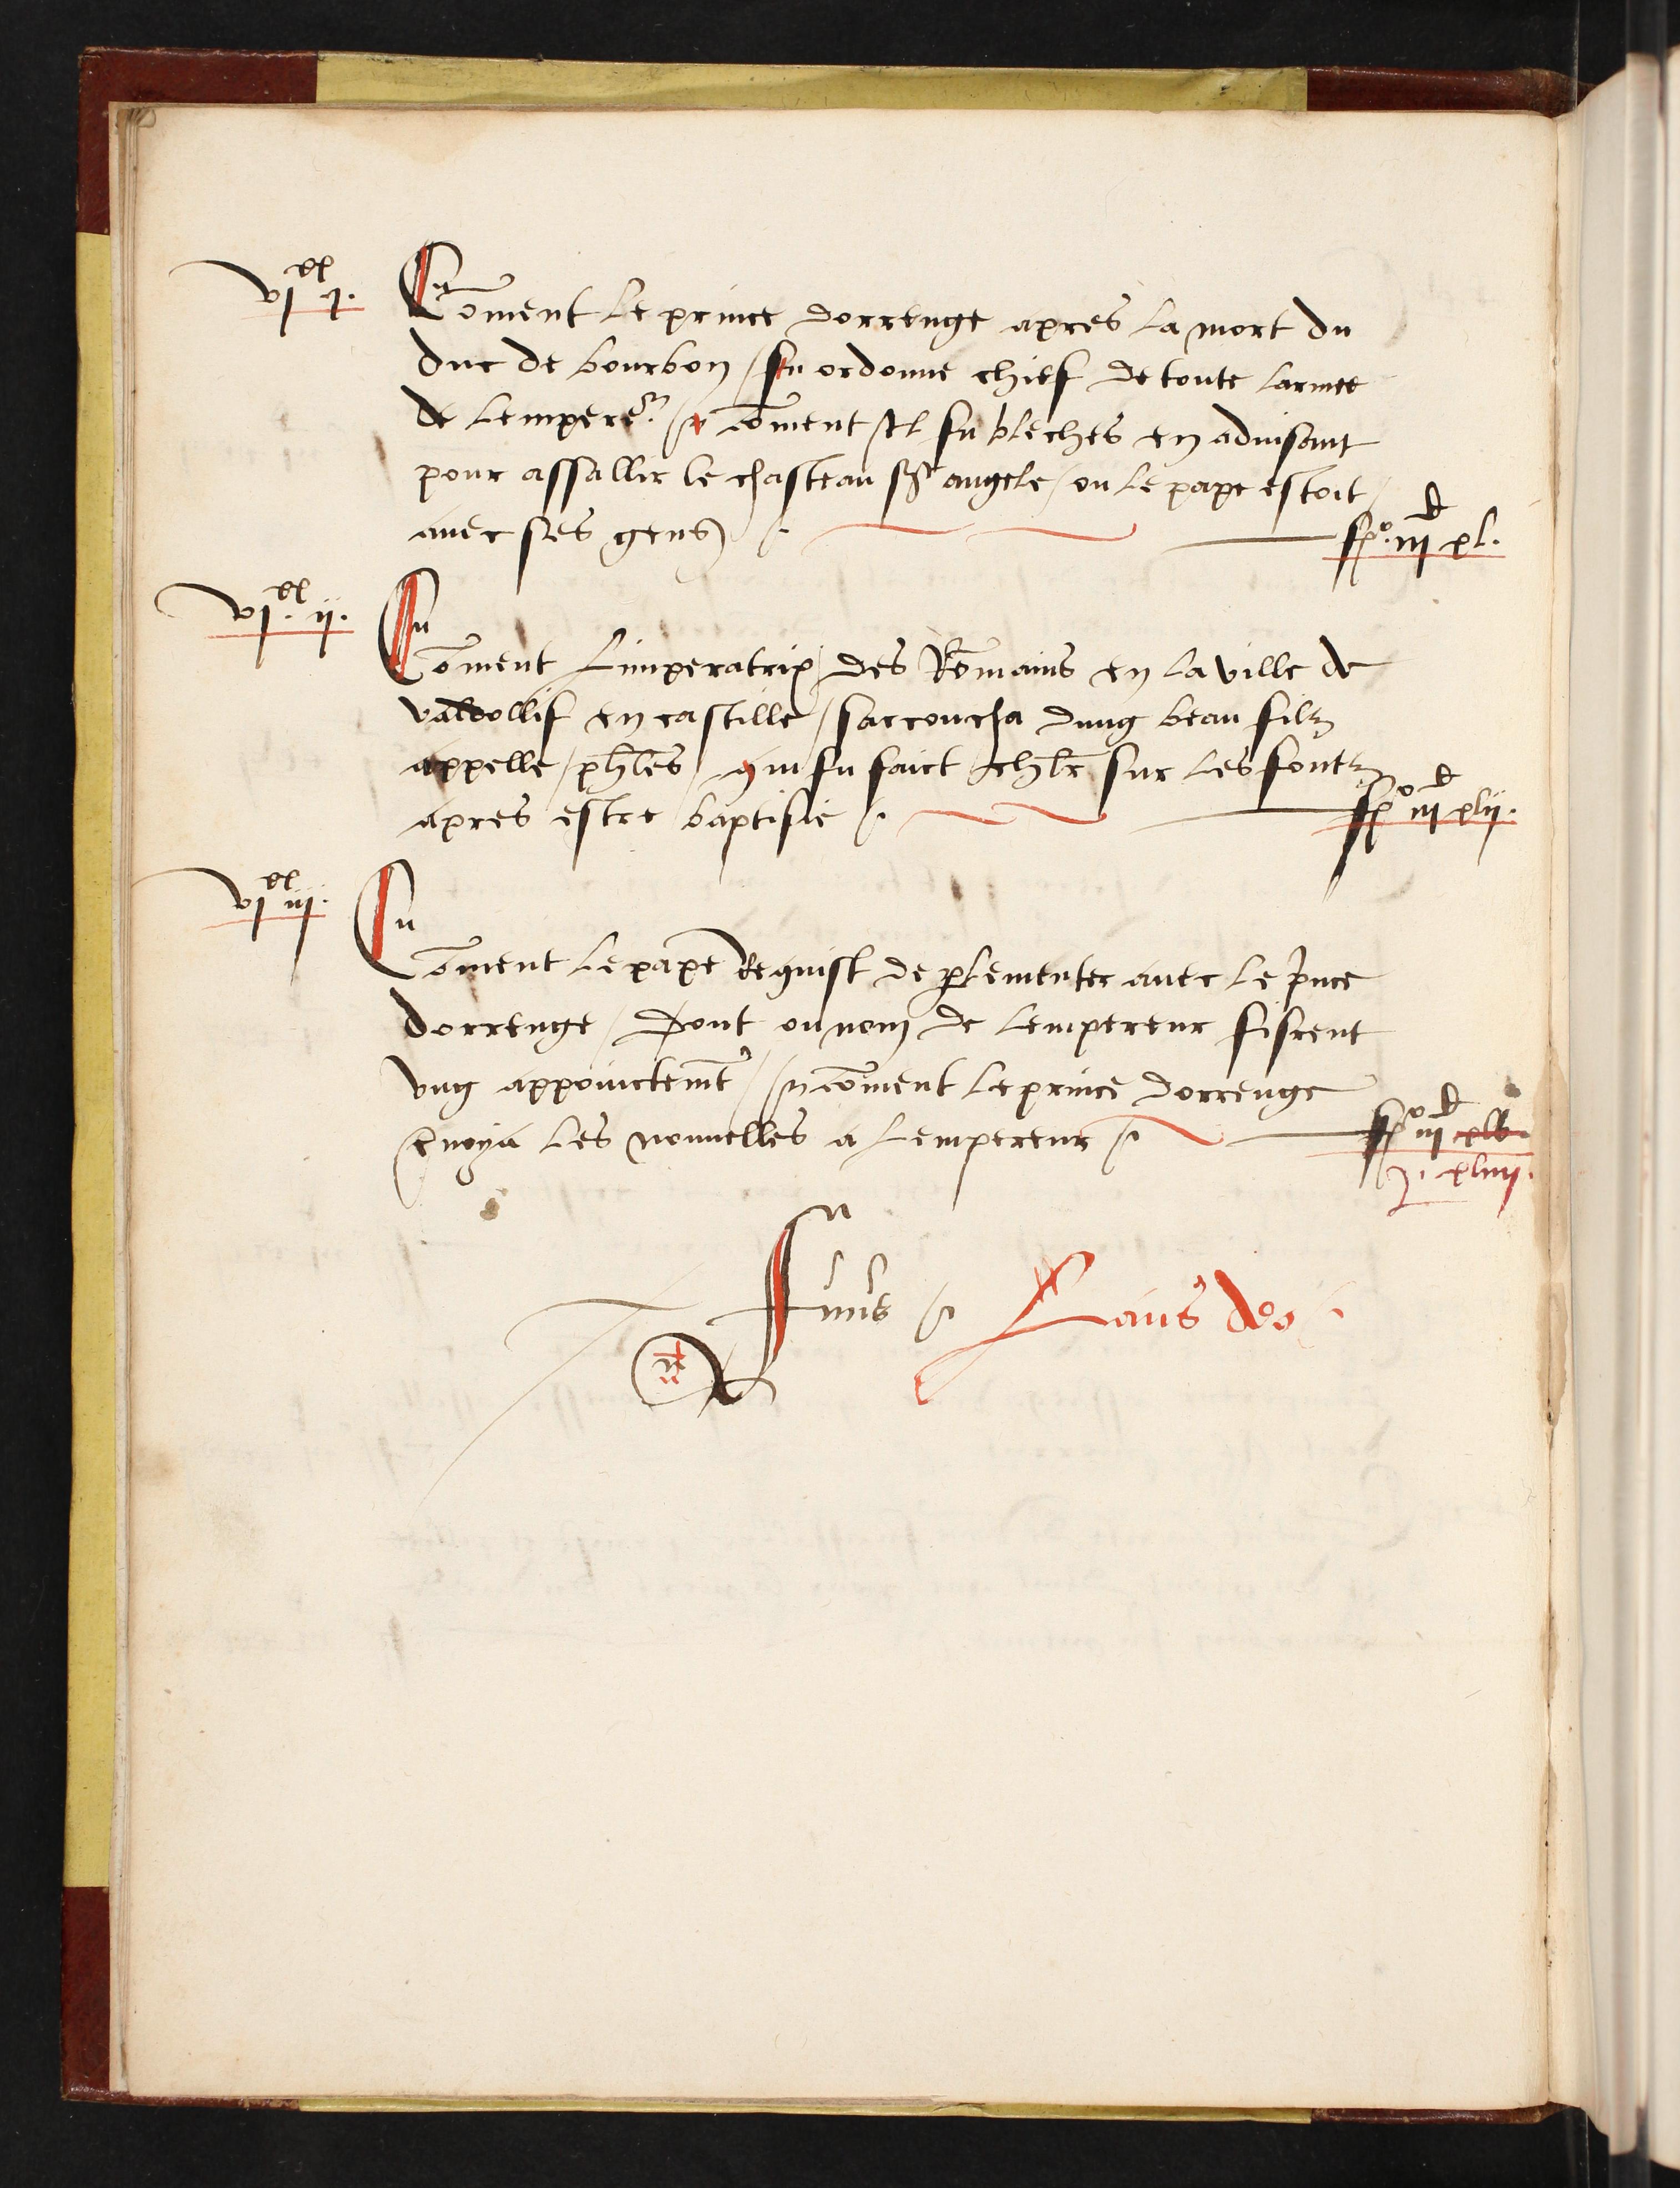 vj xx j.
Com̄ent le prince dorrenge apres la mort du
duc de bourbon / fu ordonne chief de toute larmee
de lempere.r / et com̄ent Il fu bleches en aduisant
pour assallir le chasteau sst angele / ou le pape estoit /
auec ses gens /.
fo. iij c xl.
vj xx. ij.
Com̄ent Limperatrix / des Rom̄ains en la ville de
valdollif en castille / sacconcha dung beau filz
appelle / phl̄es / qui fu faict chl̄r sur les fontz
apres estre baptisie /.
fo iij c xlij.
vj xx iij.
Com̄ent le pape Requist de p̱lementer auec le p̄nce
dorrenge / Dont ou nom de lempereur fisrent
vng appoinctemt̄ / et com̄ent le prince dorrenge
Envoya les nouuelles a lempereur /.
fo iij c xlv.
j. xliiij.
Finis /. Laus deo /.